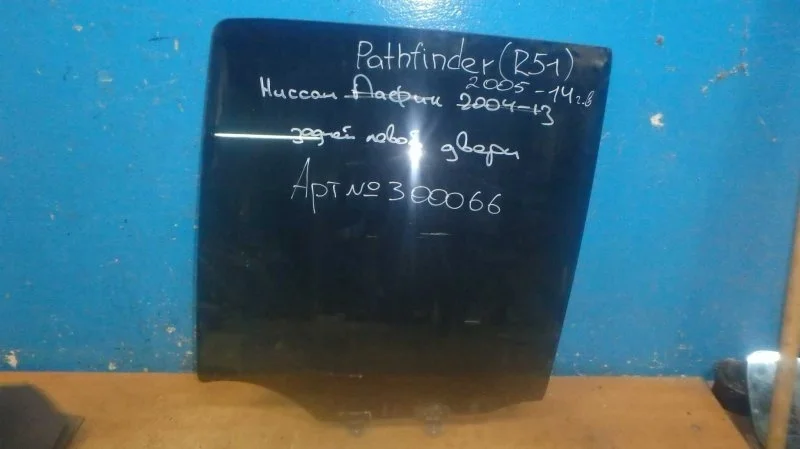 Pathfinder (R51)
2005-14 г.в
Ниссан Пафин 2004-13
задней левой двери
Арт № 300066